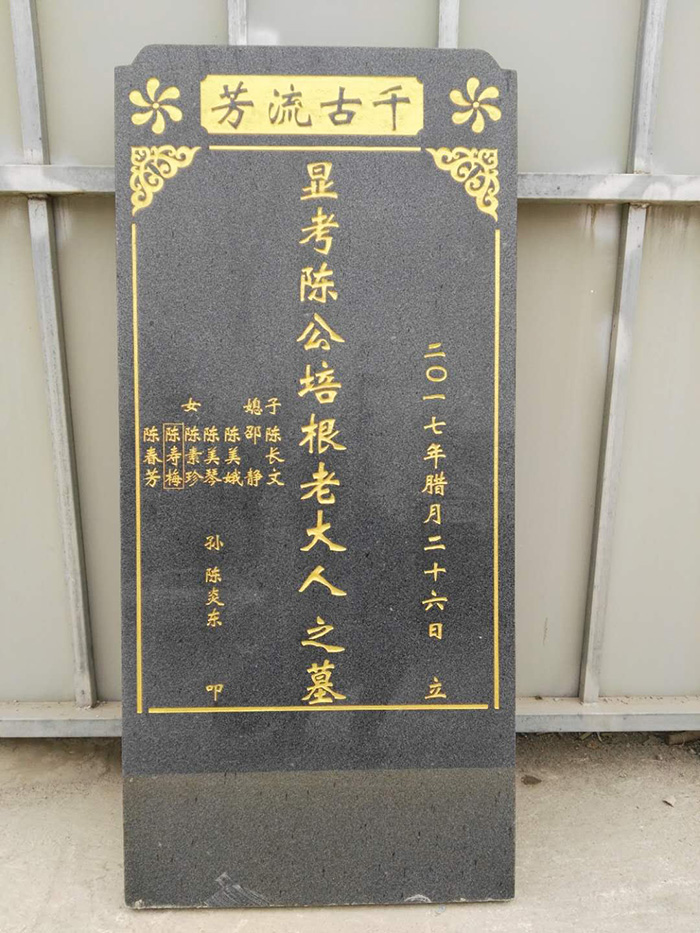 千古流芳
二〇一七年腊月二十六日 立
显考陈公培根老大人之墓
子 陈长文
媳 邵静
女 陈美娥
陈美琴
陈素珍
陈寿梅
陈春芳
孙 陈炎东
叩